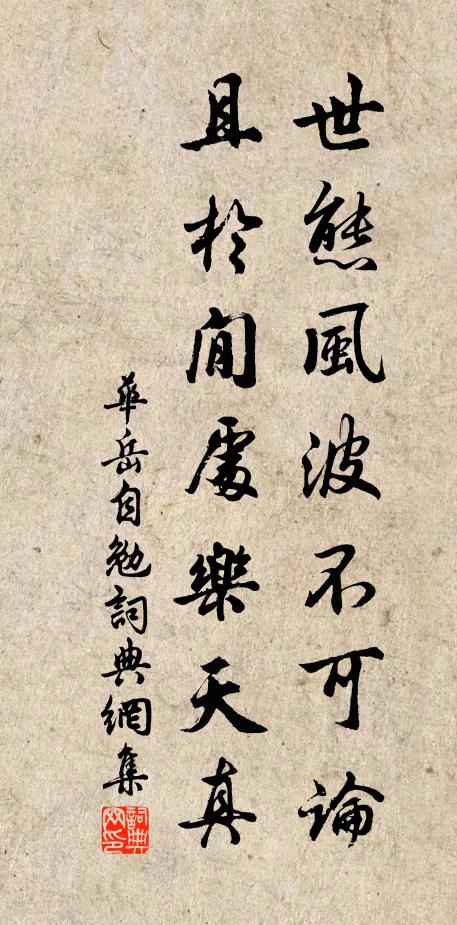 世態風波不可論
且於閒處樂天真
華岳自勉詞典網集
詞典網印